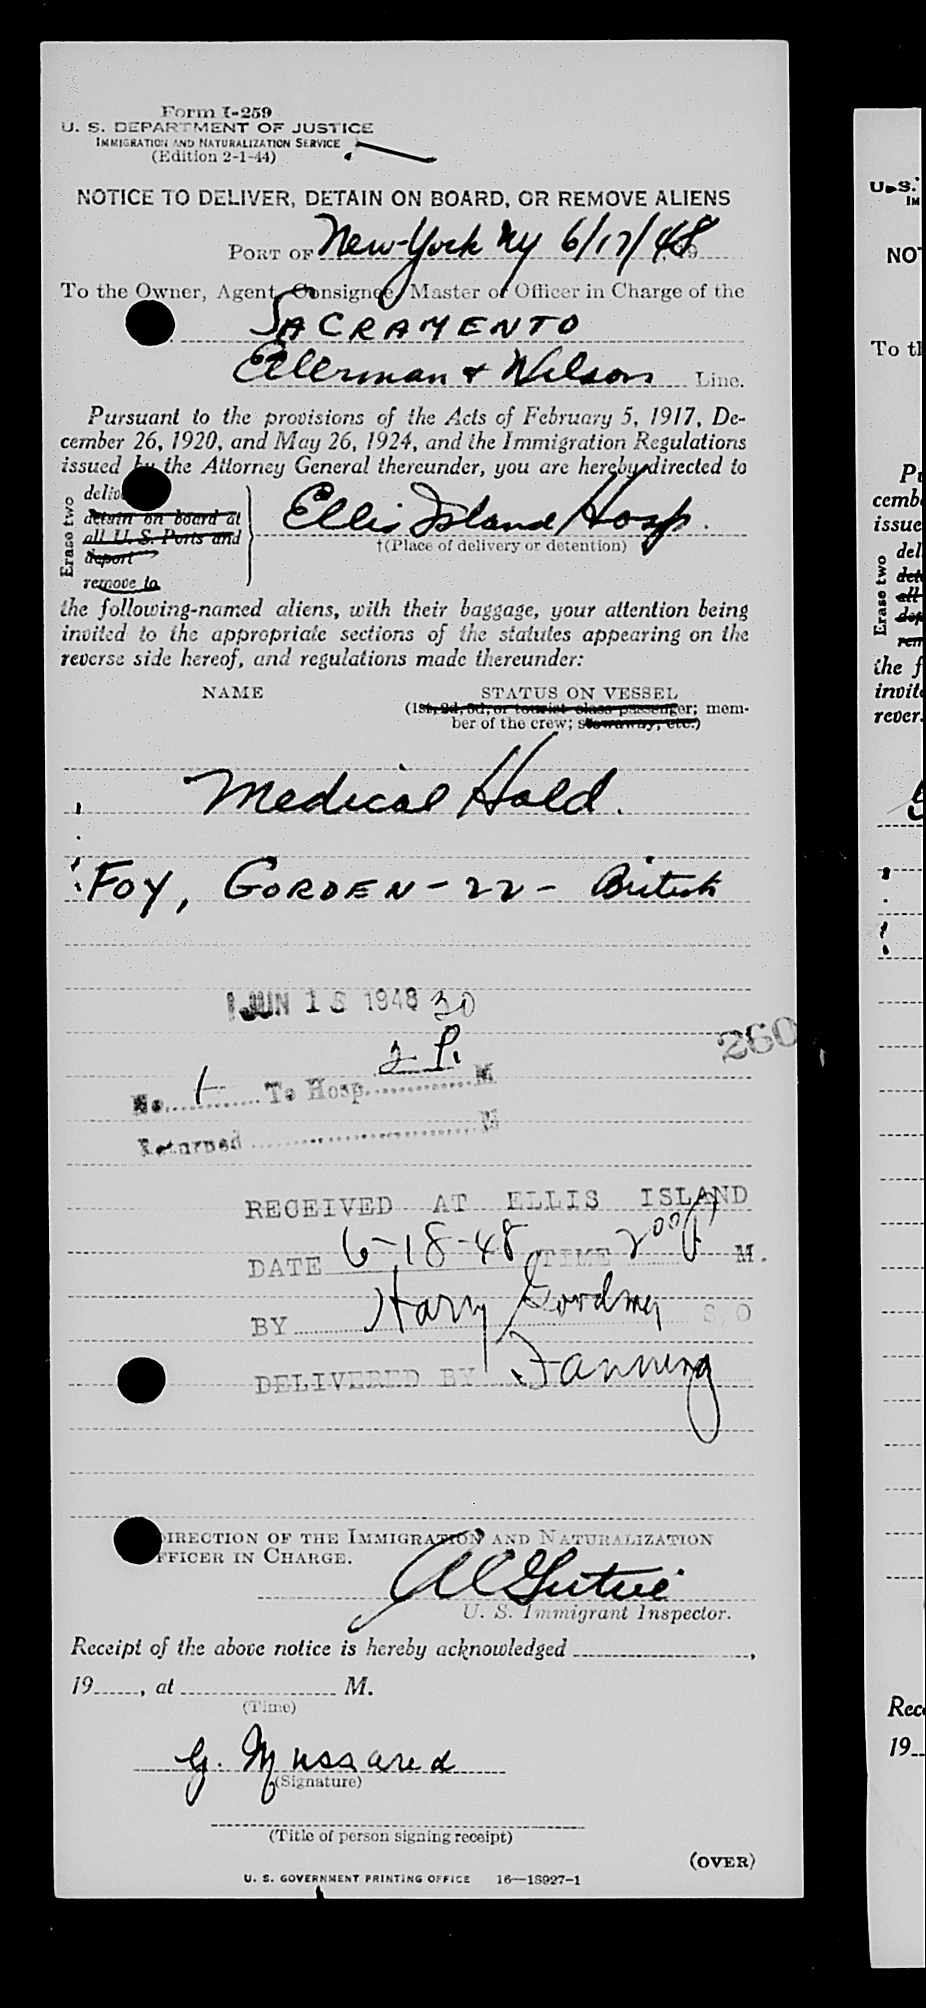 Form I-259
U. S. DEPARTMENT OF JUSTICE
IMMIGRATION AND NATURALIZATION SERVICE
(Edition 2-1-44)
NOTICE TO DELIVER, DETAIN ON BOARD, OR REMOVE ALIENS
PORT OF New York NY 6/17/48 19
To the Owner, Agent, Consignee, Master or Officer in Charge of the
SACRAMENTO
Ellerman & Wilson Line.
Pursuant to the provisions of the Acts of February 5, 1917, De-
cember 26, 1920, and May 26, 1924, and the Immigration Regulations
issued by the Attorney General thereunder, you are hereby directed to
Erase two
deliv
detain on board at
all U. S. Ports and
deport
remove to
Ellis Island Hosp.
†(Place of delivery or detention)
the following-named aliens, with their baggage, your attention being
invited to the appropriate sections of the statutes appearing on the
reverse side hereof, and regulations made thereunder:
NAME STATUS ON VESSEL
(1st, 2d, 3d, or tourist class passenger; mem-
ber of the crew; stowaway, etc.)
Medical Hold.
FOY, GORDEN - 22 - British
JUN 18 1948 30
260
2 P.
No. 1 To Hosp. M
Returned M
RECEIVED AT ELLIS ISLAND
DATE 6-18-48 TIME 2 00 P M.
BY Harry S, O
DELIVERED BY Fanning
DIRECTION OF THE IMMIGRATION AND NATURALIZATION
OFFICER IN CHARGE.
U. S. Immigrant Inspector.
Receipt of the above notice is hereby acknowledged ,
19 , at M.
(Time)
G. Mussared
(Signature)
(Title of person signing receipt)
(OVER)
U. S. GOVERNMENT PRINTING OFFICE 16—18927-1